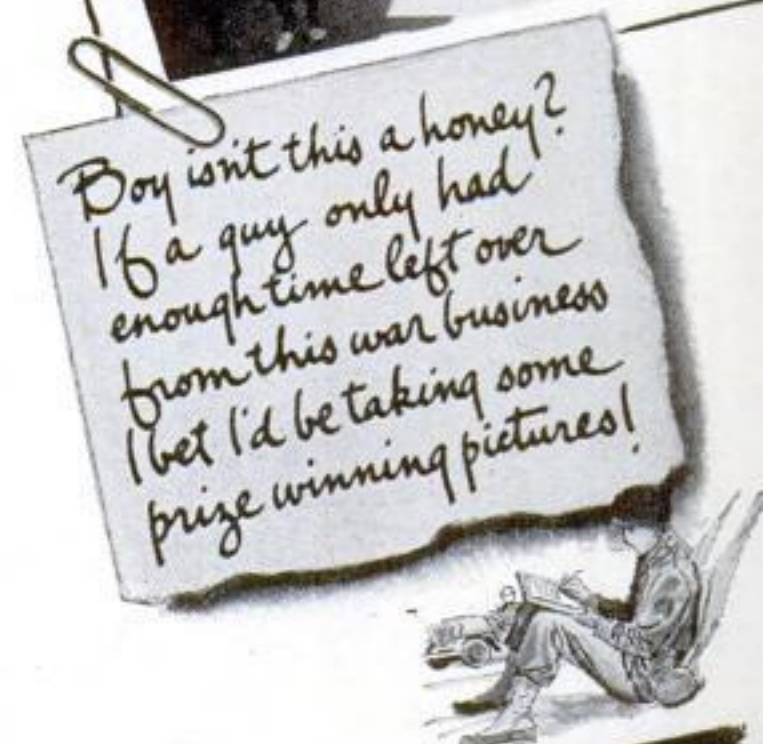 Boy isn't this a honey?
If a guy only had
enough time left over
from this war business
I bet I'd be taking some
prize winning pictures!